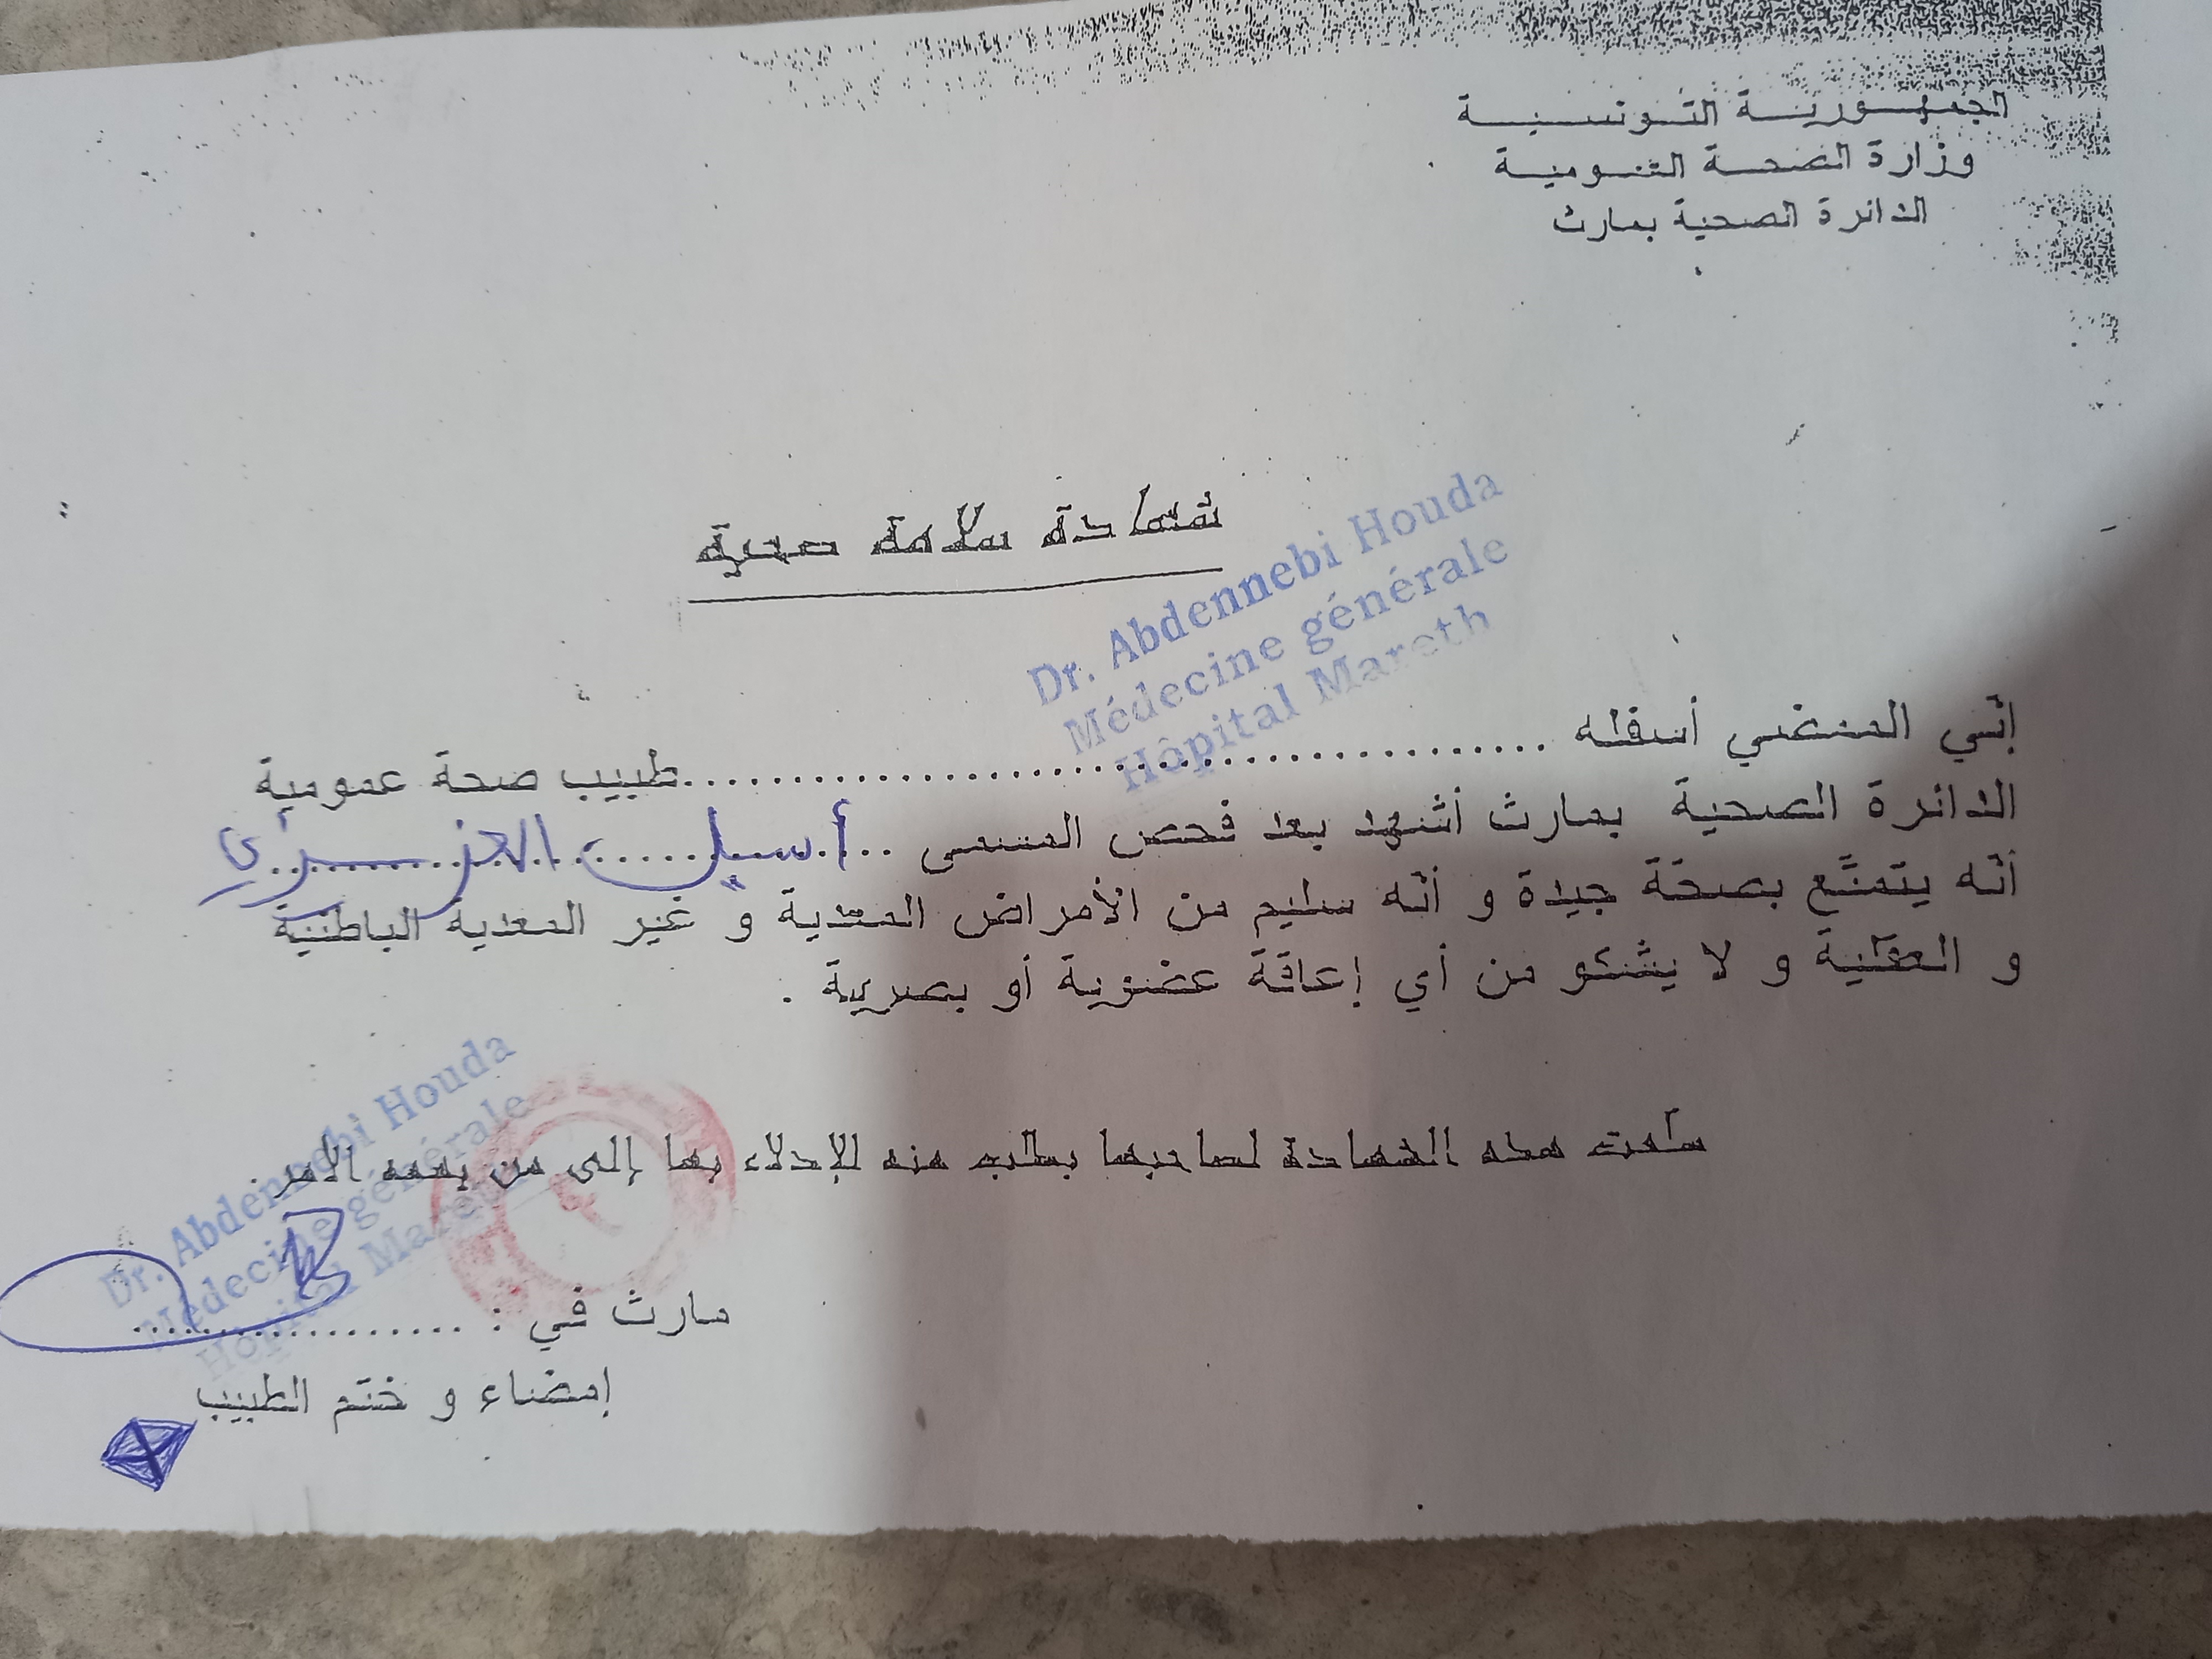 الجمهورية التونسية
وزارة الصحة العمومية
الدائرة الصحية بمارث
شهادة سلامة صحية
Dr. Abdennebi Houda
Médecine générale
Hôpital Mareth
إنّي الممضي أسفله ........................................ طبيب صحة عمومية
الدائرة الصحية بمارث أشهد بعد فحص المسمى .. أسيل
أنّه يتمتّع بصحّة جيدة و أنّه سليم من الأمراض المعدية و غير المعدية الباطنية
و العقلية و لا يشكو من أي إعاقة عضوية أو بصرية .
سلمت هذه الشهادة لصاحبها بطلب منه للإدلاء بها إلى من يهمه الأمر.
Dr. Abdennebi Houda
Médecine générale
Hôpital Mareth
مارث في : ....................
إمضاء و ختم الطبيب